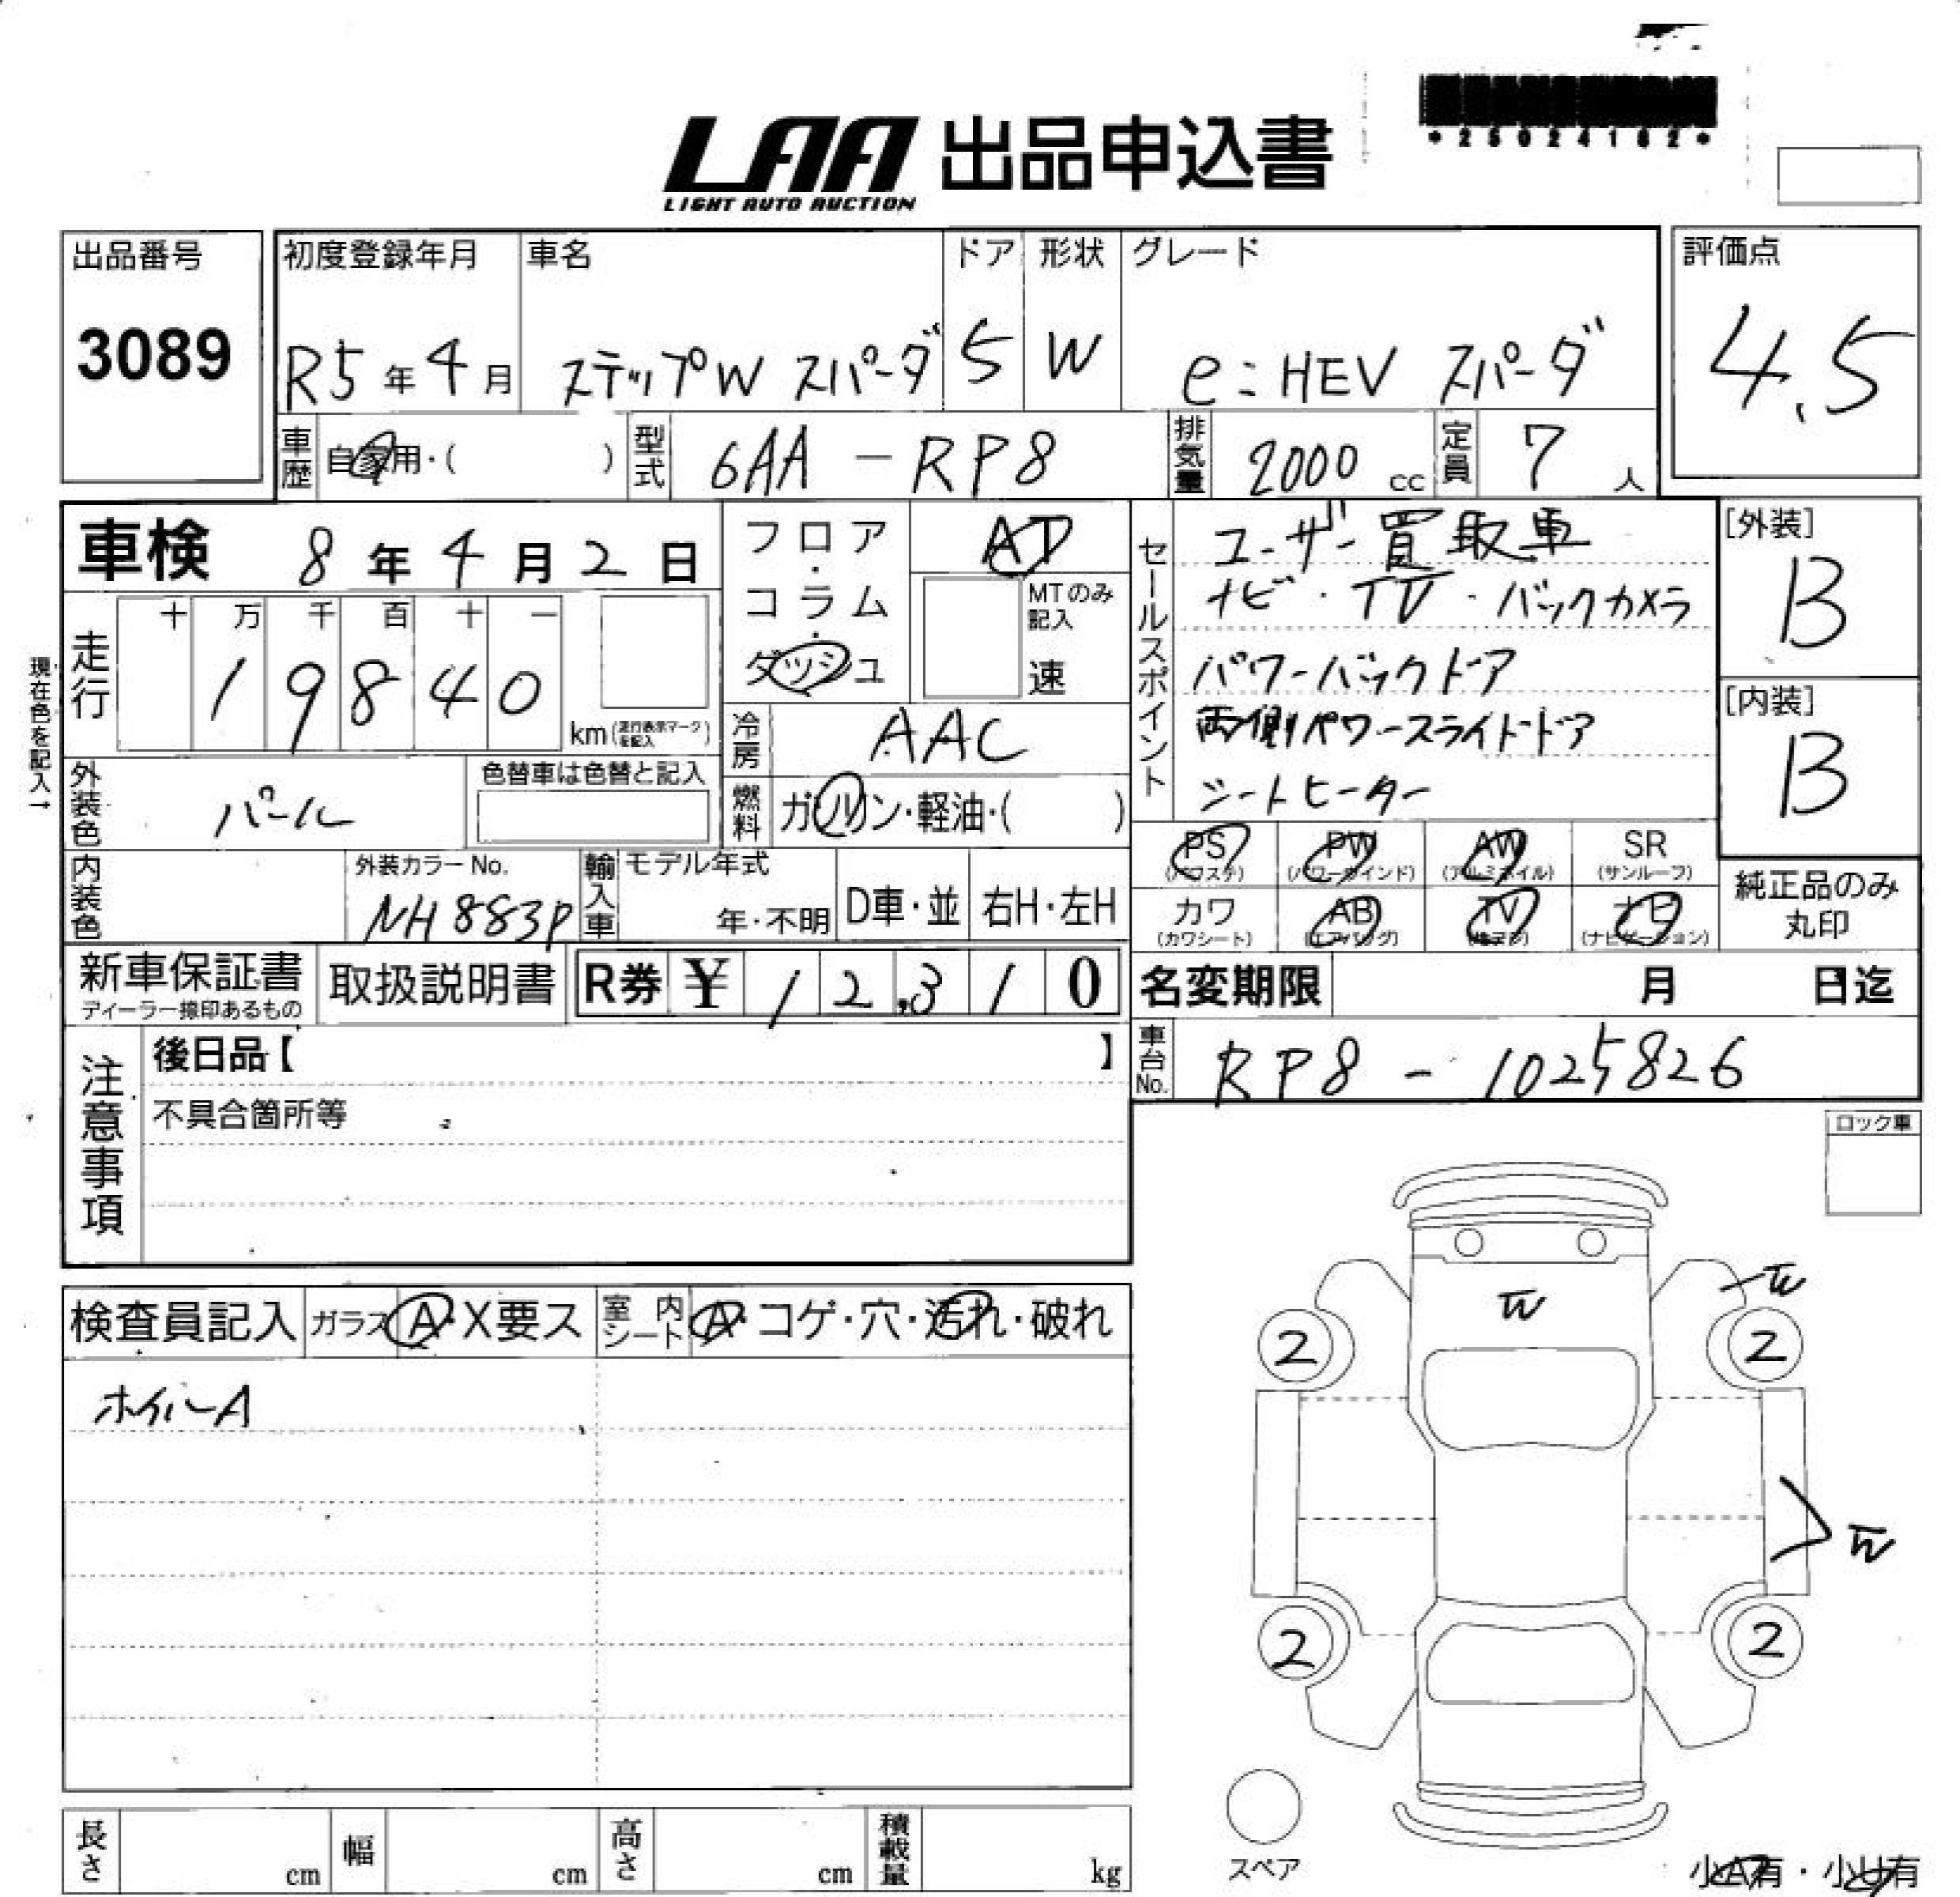 *25024182*
LAA 出品申込書
LIGHT AUTO AUCTION
出品番号
3089
初度登録年月
R5年4月
車名
ステップW スパーダ
ドア
5
形状
W
グレード
e:HEV スパーダ
評価点
4.5
車歴
自家用・( )
型式
6AA-RP8
排気量
2000 cc
定員
7人
車検 8年4月2日
フロア・コラム・ダッシュ
AT
MTのみ記入
速
走行
十 万 千 百 十 一
19840
km(走行表示マークを記入)
現在色を記入→
冷房
AAC
外装色
パール
色替車は色替と記入
燃料
ガソリン・軽油・( )
セールスポイント
ユーザー買取車
ナビ・TV・バックカメラ
パワーバックドア
両側パワースライドドア
シートヒーター
[外装]
B
[内装]
B
内装色
外装カラーNo.
NH883P
輸入車
モデル年式
年・不明
D車・並
右H・左H
PS
(パワステ)
PW
(パワーウインド)
AW
(アルミホイル)
SR
(サンルーフ)
カワ
(カワシート)
AB
(エアバッグ)
TV
ナビ
(ナビゲーション)
純正品のみ
丸印
新車保証書
ディーラー捺印あるもの
取扱説明書
R券 ¥12,310
名変期限 月 日迄
車台No.
RP8-1025826
注意事項
後日品【 】
不具合箇所等
ロック車
検査員記入
ガラス A・X要ス
室内シート A・コゲ・穴・汚れ・破れ
ホイルA
2
2
2
2
スペア
長さ cm
幅 cm
高さ cm
積載量 kg
小A有・小U有